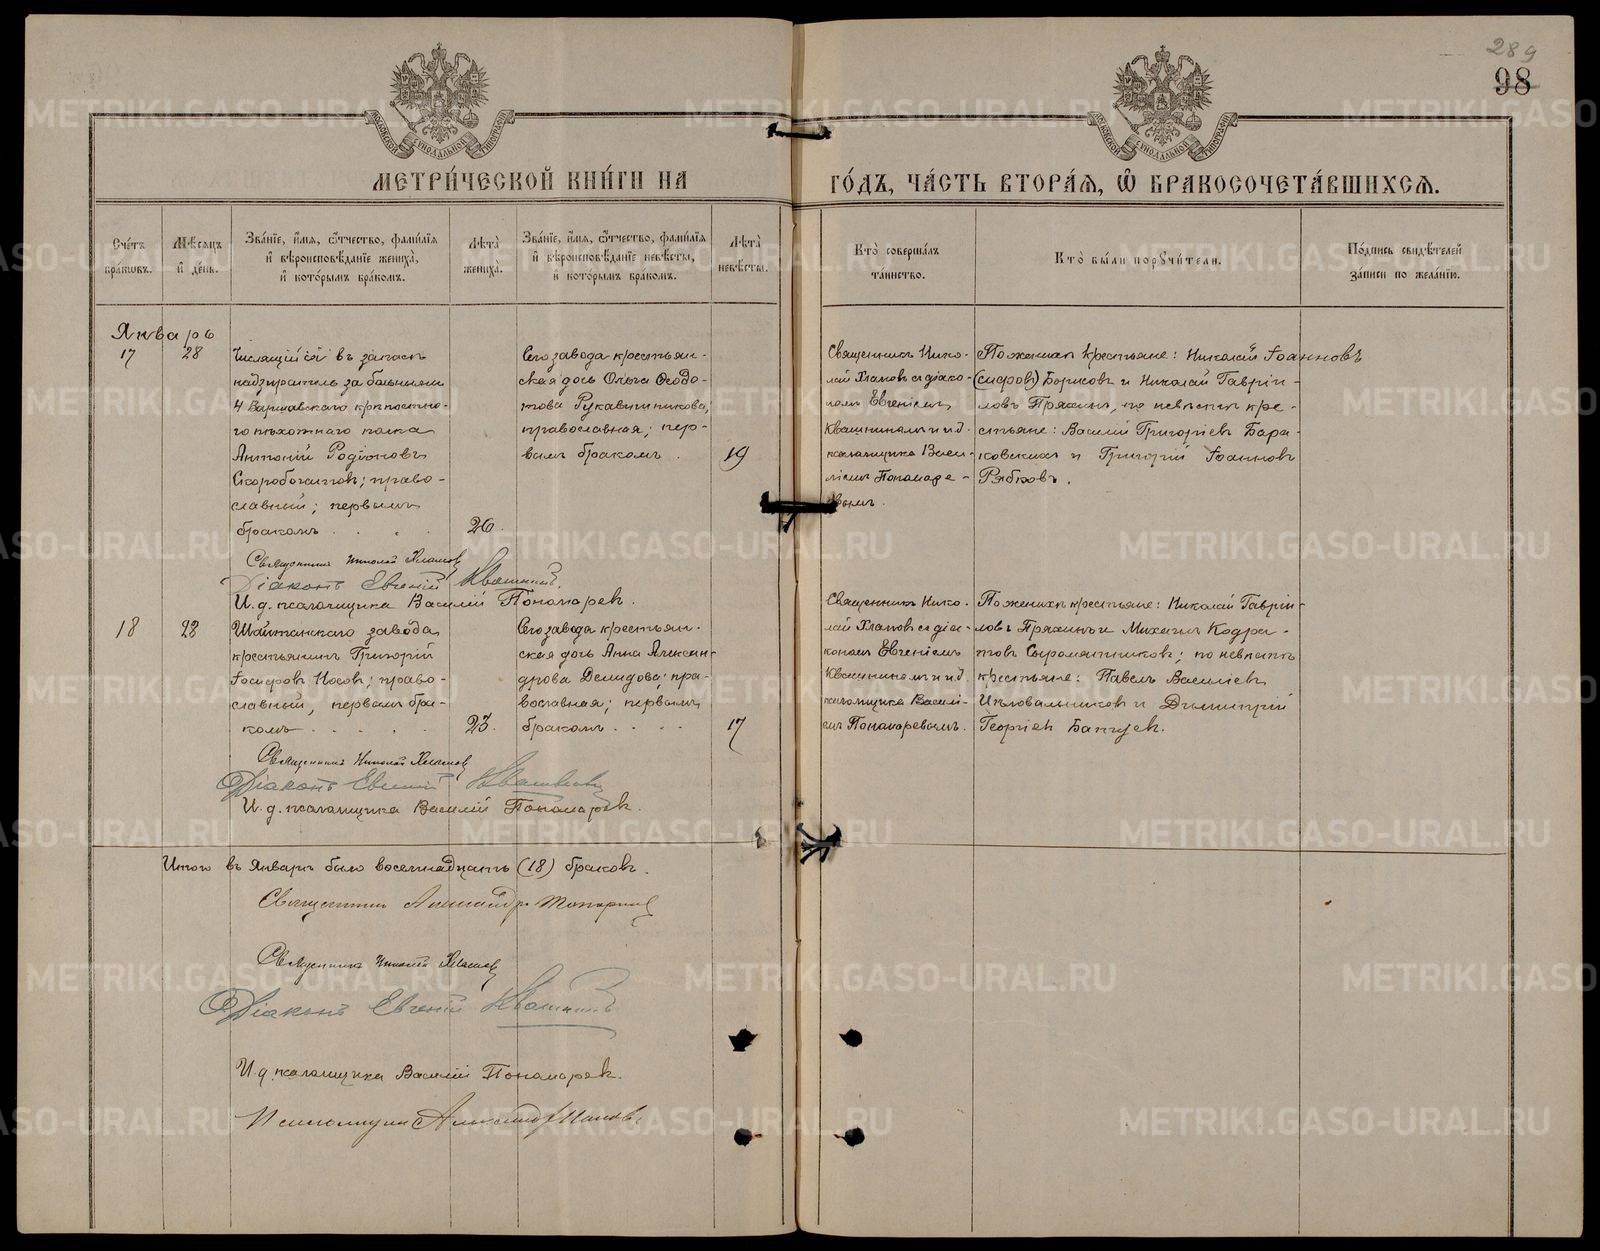 289
98
МЕТРИ́ЧЕСКОЙ КНИ́ГИ НА ГО́ДЪ, ЧА́СТЬ ВТОРА́Я, Ѡ҆ БРАКОСОЧЕТА́ВШИХСѦ.
Сче́тъ бра́кѡвъ.
Мѣ́сѧцъ и҆ де́нь.
Зва́нїе, и҆́мѧ, ѻ҆́тчество, фами́лїѧ и҆ вѣроисповѣ́данїе жениха̀, и҆ кото́рымъ бра́комъ.
Лѣ́та жениха̀.
Зва́нїе, и҆́мѧ, ѻ҆́тчество, фами́лїѧ и҆ вѣроисповѣ́данїе невѣ́сты, и҆ кото́рымъ бра́комъ.
Лѣ́та невѣ́сты.
Кто̀ соверша́лъ та́инство.
Кто̀ бы́ли порꙋчи́тели.
По́дпись свидѣ́телей за́писи по жела́нїю.
Январь
17
28
Числящійся въ запасѣ
надзиратель за больными
4 Варшавскаго крѣпостно-
го пѣхотнаго полка
Антоній Родіоновъ
Скоробогатовъ; право-
славный; первымъ
бракомъ
26
Сего завода крестьян-
ская дочь Ольга Ѳеодо-
това Рукавишникова,
православная; пер-
вымъ бракомъ
19
Священникъ Нико-
лай Хламовъ съ діако-
номъ Евгеніемъ
Квашнинымъ и и.д.
псаломщика Васи-
ліемъ Пономаре-
вымъ.
По женихѣ крестьяне: Николай Іоанновъ
Борисовъ и Николай Гавріи-
ловъ Пряхинъ, по невѣстѣ кре-
стьяне: Василій Григорьевъ Бара-
ковскихъ и Григорій Іоанновъ
Рябковъ.
Священникъ Николай Хламовъ
Діаконъ Евгеній Квашнинъ.
И. д. псаломщика Василій Пономаревъ.
18
28
Шайтанскаго завода
крестьянинъ Григорій
Іосифовъ Носовъ; право-
славный, первымъ бра-
комъ
23
Сего завода крестьян-
ская дочь Анна Алексан-
дрова Демидова; пра-
вославная; первымъ
бракомъ
17
Священникъ Нико-
лай Хламовъ съ діа-
кономъ Евгеніемъ
Квашнинымъ и и.д
псаломщика Василі-
емъ Пономаревымъ.
По женихѣ крестьяне: Николай Гавріи-
ловъ Пряхинъ и Михаилъ Кодра-
товъ Сыромятниковъ; по невѣстѣ
крестьяне: Павелъ Василіевъ
Цѣловальниковъ и Димитрій
Георгіевъ
Священникъ Николай Хламовъ
Діаконъ Евгеній Квашнинъ
И. д. псаломщика Василій Пономаревъ.
Итого въ Январѣ было восемнадцать (18) браковъ.
Священникъ Александръ Топорковъ
Священникъ Николай Хламовъ
Діаконъ Евгеній Квашнинъ
И. д. псаломщика Василій Пономаревъ.
Псаломщикъ Александръ Поповъ
METRIKI.GASO-URAL.RU